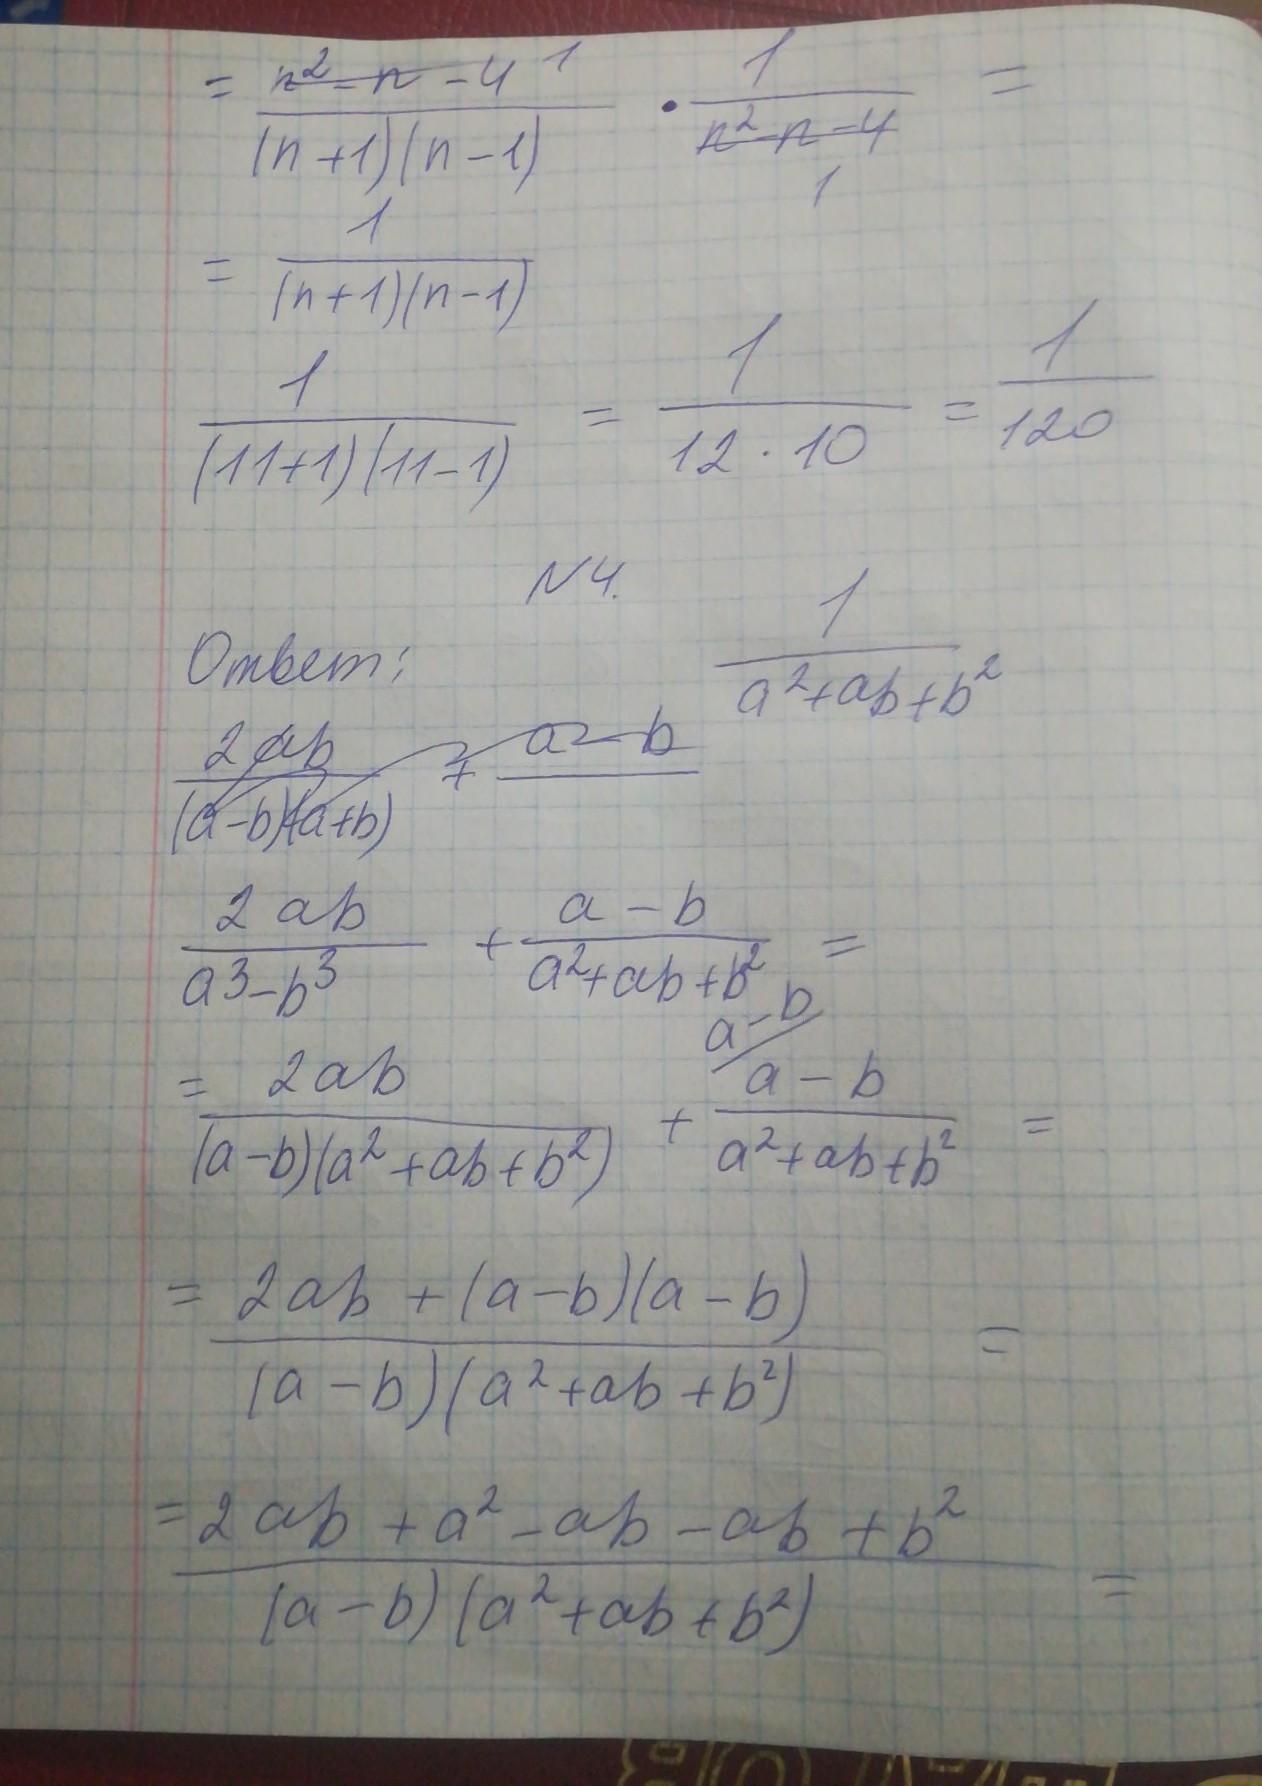 = n² - n - 4 1 / (n+1)(n-1) · 1 / n² - n - 4 1 =
= 1 / (n+1)(n-1)
1 / (11+1)(11-1) = 1 / 12 · 10 = 1 / 120
N4.
Ответ: 1 / a²+ab+b²
2ab / (a-b)(a+b) + a-b
2ab / a³-b³ + a-b / a²+ab+b² =
= 2ab / (a-b)(a²+ab+b²) + a-b / a-b / a²+ab+b² =
= 2ab + (a-b)(a-b) / (a-b)(a²+ab+b²) =
= 2ab + a² - ab - ab + b² / (a-b)(a²+ab+b²) =